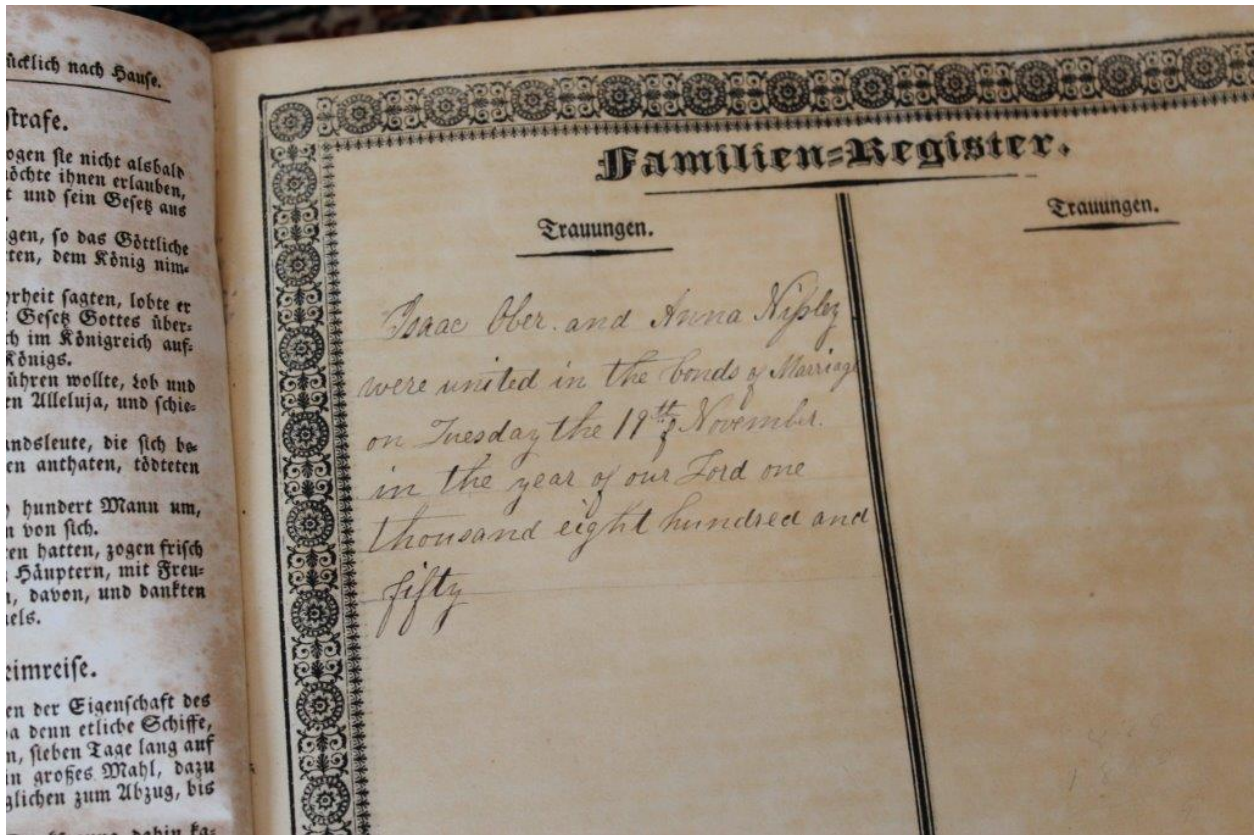 ücklich nach Hause.
strafe.
ogen sie nicht alsbald
möchte ihnen erlauben,
t und sein Gesetz aus
gen, so das Göttliche
ten, dem König nim=
hrheit sagten, lobte er
Gesetz Gottes über=
ch im Königreich auf=
Königs.
ühren wollte, Lob und
en Alleluja, und schie=
andsleute, die sich be=
en anthaten, tödteten
hundert Mann um,
n von sich.
en hatten, zogen frisch
Häuptern, mit Freu=
, davon, und dankten
els.
eimreise.
en der Eigenschaft des
a denn etliche Schiffe,
n, sieben Tage lang auf
in großes Mahl, dazu
glichen zum Abzug, bis
dahin ka=
Familien=Register.
Trauungen.
Isaac Ober. and Anna Nissley
were united in the bonds of Marriage
on Tuesday the 19th of November.
in the year of our Lord one
thousand eight hundred and
fifty
Trauungen.